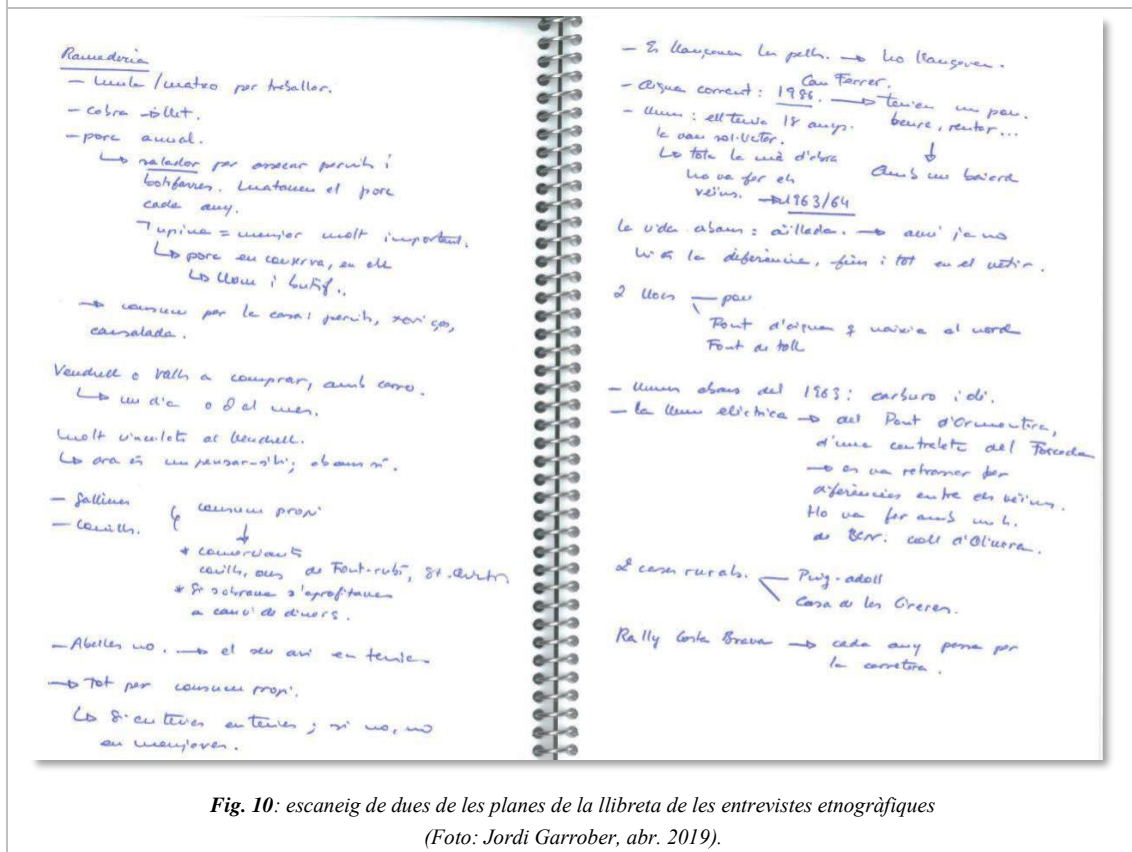 Ramaderia
— mula / matxo per treballar.
— cabra → llet.
— porc anual.
↳ salador per assecar pernils i
botifarres. Mataven el porc
cada any.
Tupina = menjar molt important.
↳ porc en conserva, en oli
↳ llom i butif.
→ consum per la casa: pernils, xoriços,
cansalada.
Vendrell o Valls a comprar, amb carro.
↳ un dia o 2 al mes.
Molt vinculats al Vendrell.
↳ ara és un pensar-s'hi; abans sí.
— Gallines
— Conills.
consum propi
↓
* comerciants
conills, ous de Font-rubí, St. Quintí
* Si sobrava s'aprofitava
a canvi de diners.
— Abelles no. → el seu avi en tenia
→ Tot per consum propi.
↳ Si en tenies en tenies; si no, no
en menjaves.
— Es llançaven les pells. → ho llançaven.
Can Ferrer.
— Aigua corrent: 1986. → tenien un pou.
beure, rentar...
↓
— llum: ell tenia 18 anys.
la van sol·licitar.
↳ tota la mà d'obra
ho va fer els
veïns. → 1963/64
la vida abans: aïllada. → avui ja no
hi és la diferència, fins i tot en el vestir.
2 llocs — pou
Font d'aigua q naixia al nord
Font de toll
— llum abans del 1963: carburo i oli.
— la llum elèctrica → del Pont d'Armentera,
d'una centraleta del
→ es va retrassar per
diferències entre els veïns.
Ho va fer amb un h.
de coll d'
2 cases rurals. Puig-adoll
Casa de les
Rally Costa Brava → cada any passa per
la carretera.
Fig. 10: escaneig de dues de les planes de la llibreta de les entrevistes etnogràfiques
(Foto: Jordi Garrober, abr. 2019).